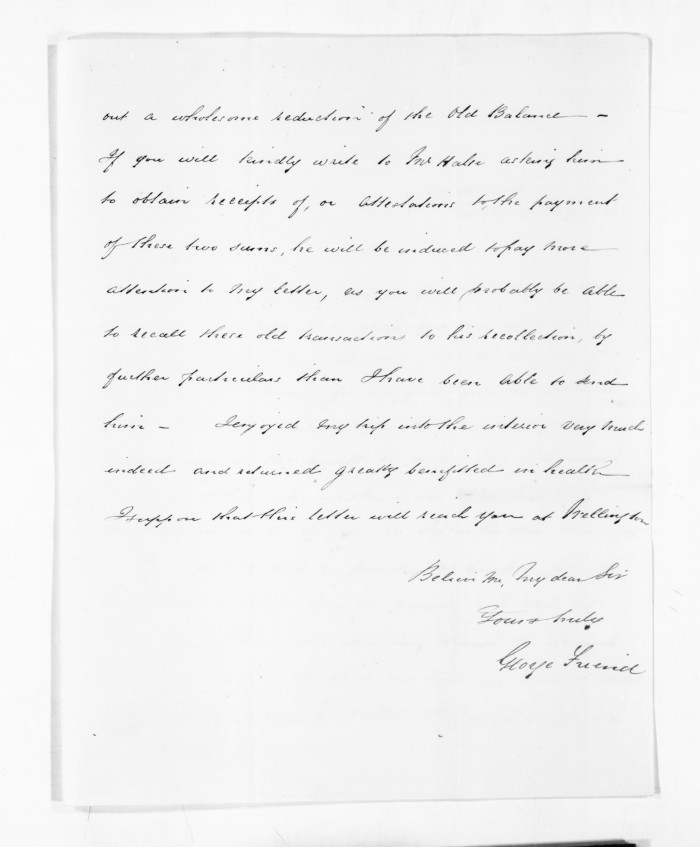 out a wholesome reduction of the Old Balance -
If you will kindly write to Mr Halse asking him
to obtain receipts of, or attestations to, the payment
of these two sums, he will be induced to pay more
attention to my letter, as you will probably be able
to recall these old transactions to his recollection, by
further particulars than I have been able to send
him - I enjoyed my trip into the interior very much
indeed and returned greatly benefitted in health
I suppose that this letter will reach you at Wellington
Believe me, My dear Sir
Yours truly
George Friend